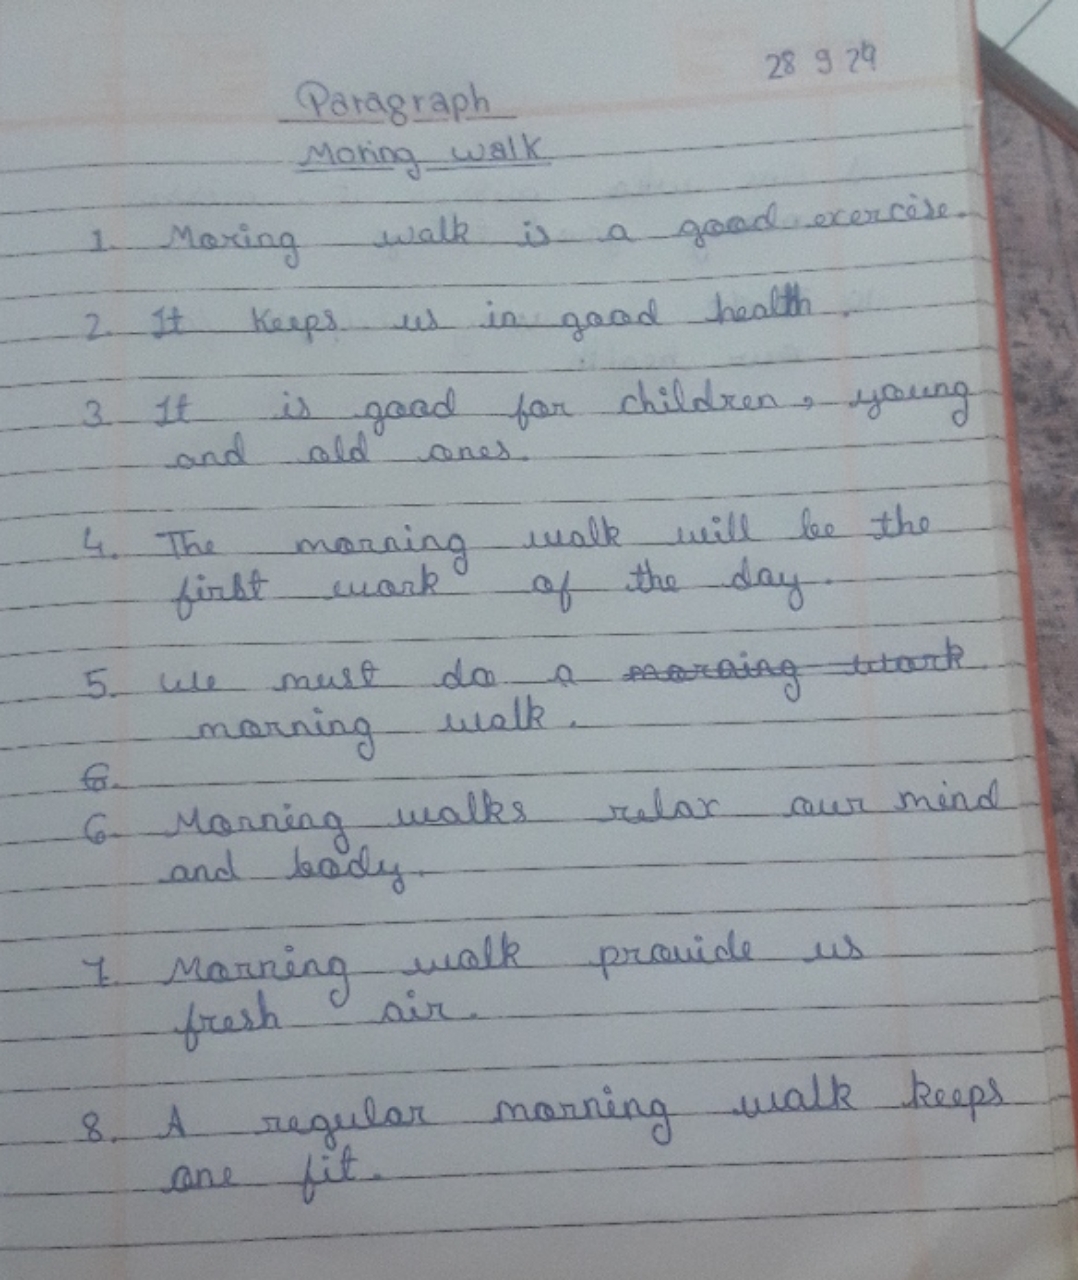 28 9 24
Paragraph
Moring walk
1. Moring walk is a good exercise.
2. It keeps us in good health.
3. It is good for children, young
and old ones.
4. The morning walk will be the
first work of the day.
5. We must do a morning work
morning walk.
6.
6. Morning walks relax our mind
and body.
7. Morning walk provide us
fresh air.
8. A regular morning walk keeps
one fit.